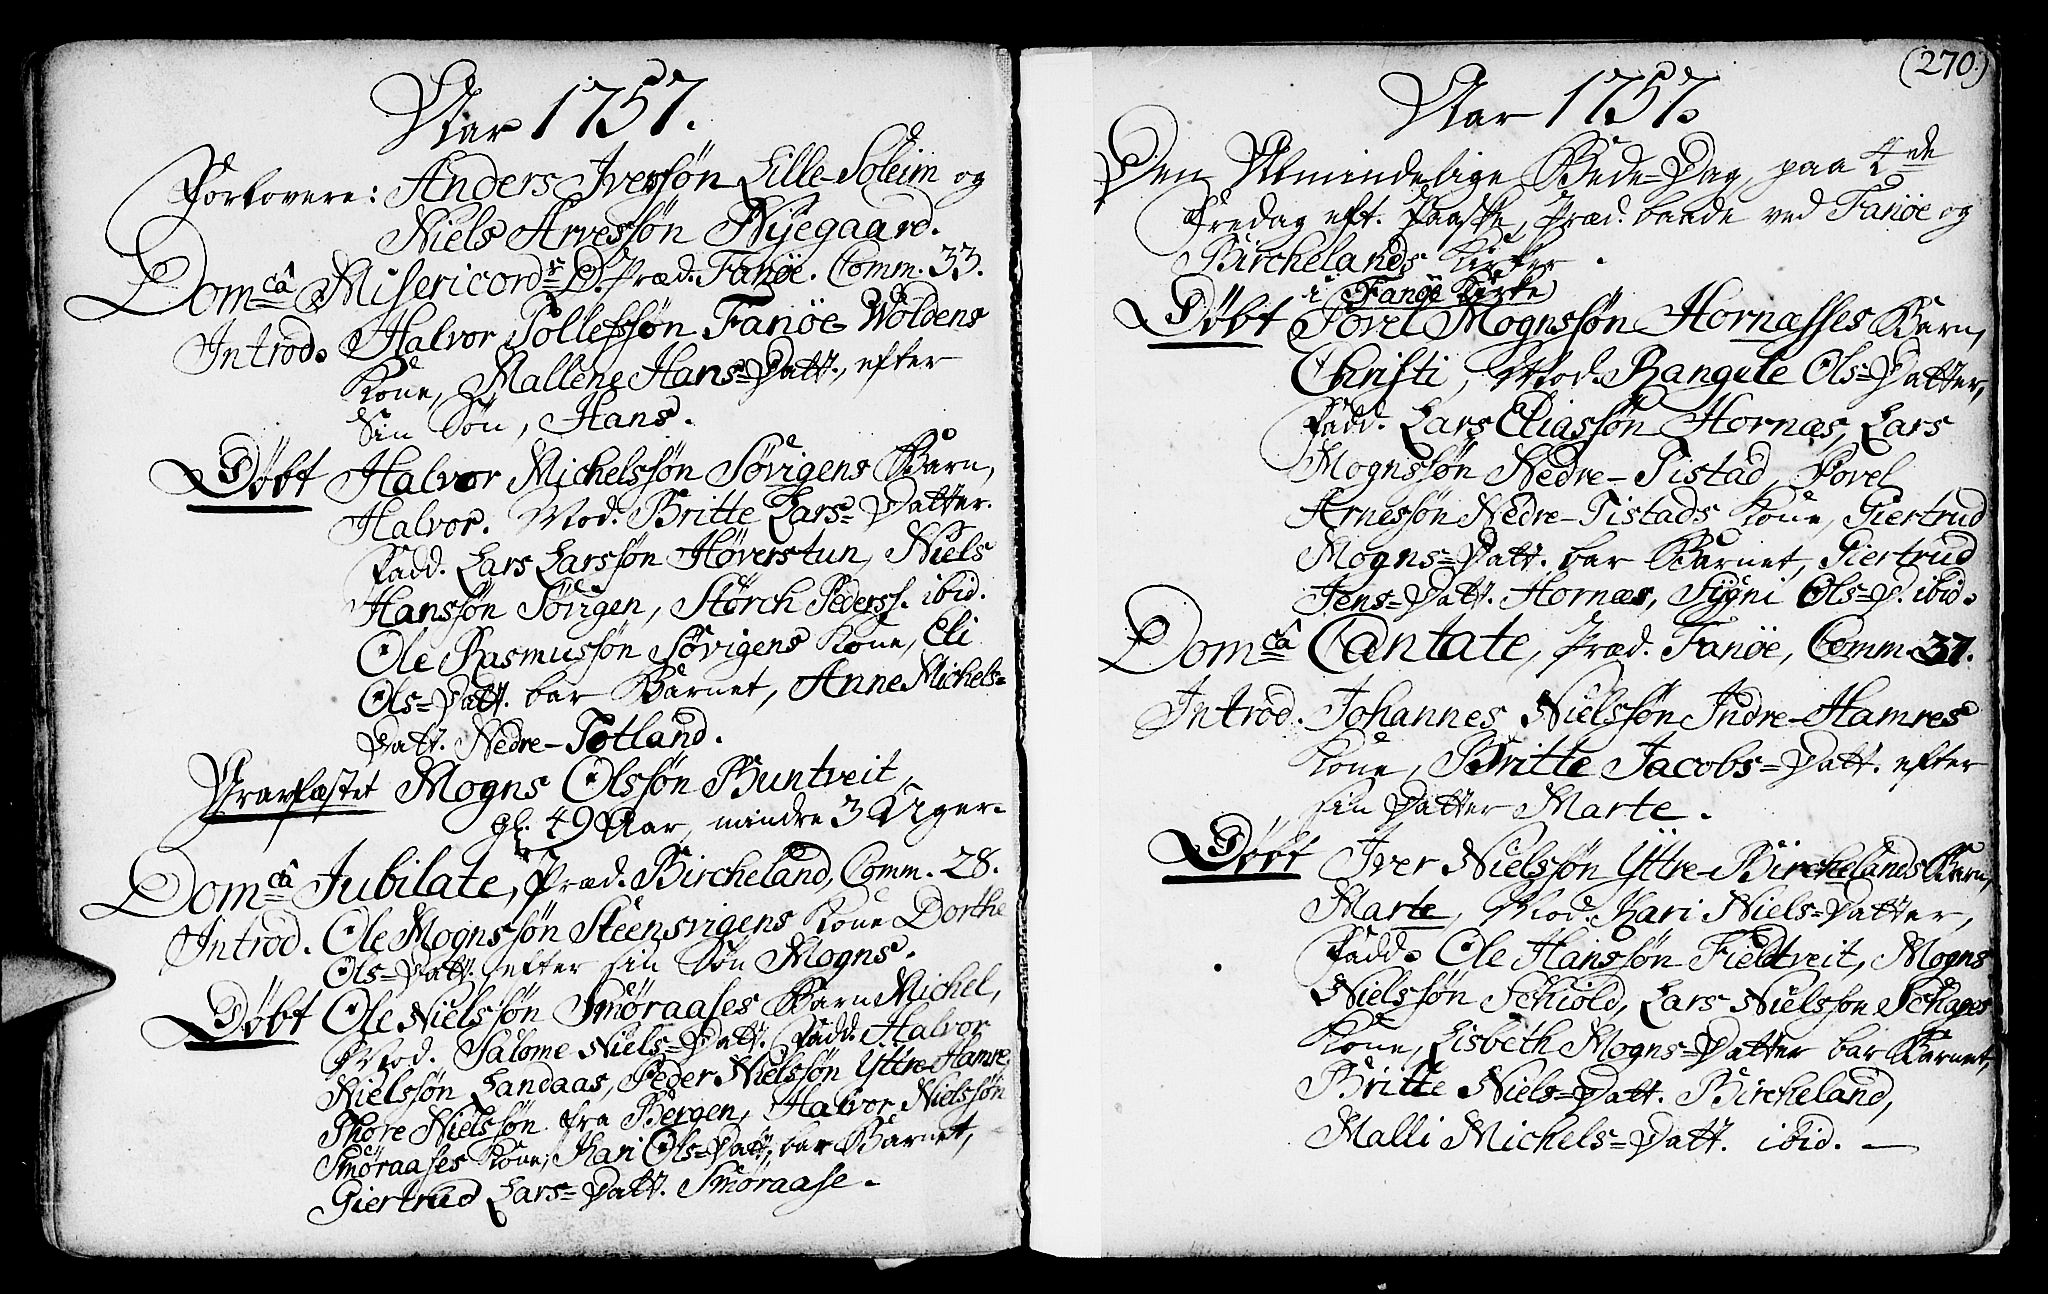 Aar 1757.
Forlovere: Anders Iverssøn Lille-Soleim og
Niels Arvessøn Nyegaard.
Dom:câ Misericord:s D. Præd. Fanøe. Comm. 33.
Introd. Halvor Tollefssøn Fanøe-Woldens
Kone, Mallene Hans-Datt., efter
Sin Søn, Hans.
Døbt Halvor Michelssøn Søvigens Barn,
Halvor. Mod. Britte Lars-Datter.
Fadd. Lars Larssøn Høverstun, Niels
Hanssøn Søvigen, Størch Pederss. ibid.
Ole Rasmussøn Søvigens Kone, Eli
Ols-Datt. bar Barnet, Anne Michels-
Datt. Nedre-Totland.
Gravfæstet Mogns Olssøn Buntveit,
gl. 49 Aar, mindre 3 Uger.
Dom:câ Jubilate, Præd. Bircheland, Comm. 28.
Introd. Ole Mognssøn Steensvigens Kone Dorthe
Ols-Datt. efter sin Søn Mogns.
Døbt Ole Nielssøn Smøraases Barn Michel,
Mod. Salome Niels-Datt. Fadd. Halvor
Nielssøn Landaas, Peder Nielssøn Yttre-Hamre,
Thore Nielssøn fra Bergen, Halvor Nielssøn
Smøraases Kone, Kari Ols-Datt, bar Barnet,
Giertrud Lars-Datt. Smøraase.
(270.)
Aar 1757.
Den Almindelige Bede-Dag, paa 4de
Fredag eft. Paaske, Præd. baade ved Fanøe og
Birchelands Kirker.
i Fanøe Kirke
Døbt Povel Mognssøn Hornæsses Barn,
Christi, Mod. Rangele Ols-Datter,
Fadd. Lars Eliassøn Hornæs, Lars
Mognssøn Nedre-Tistad, Povel
Arnessøn Nedre-Tistads Kone, Giertrud
Mogns-Datt. bar Barnet, Giertrud
Jens-Datt. Hornæs, Sygni Ols-D. ibid.
Dom:câ Cantate, Præd. Fanøe, Comm. 37.
Introd. Johannes Nielssøn Indre-Hamres
Kone, Britte Jacobs-Datt. efter
sin Datter Marte.
Døbt Iver Nielssøn Yttre-Birchelands Barn,
Marte, Mod. Kari Niels-Datter,
Fadd. Ole Hanssøn Fieldtveit, Mogns
Nielssøn Schiold, Lars Nielssøn Schages
Kone, Lisbeth Mogns-Datter bar Barnet,
Britte Niels-Datt. Bircheland,
Malli Michels-Datt. ibid. —